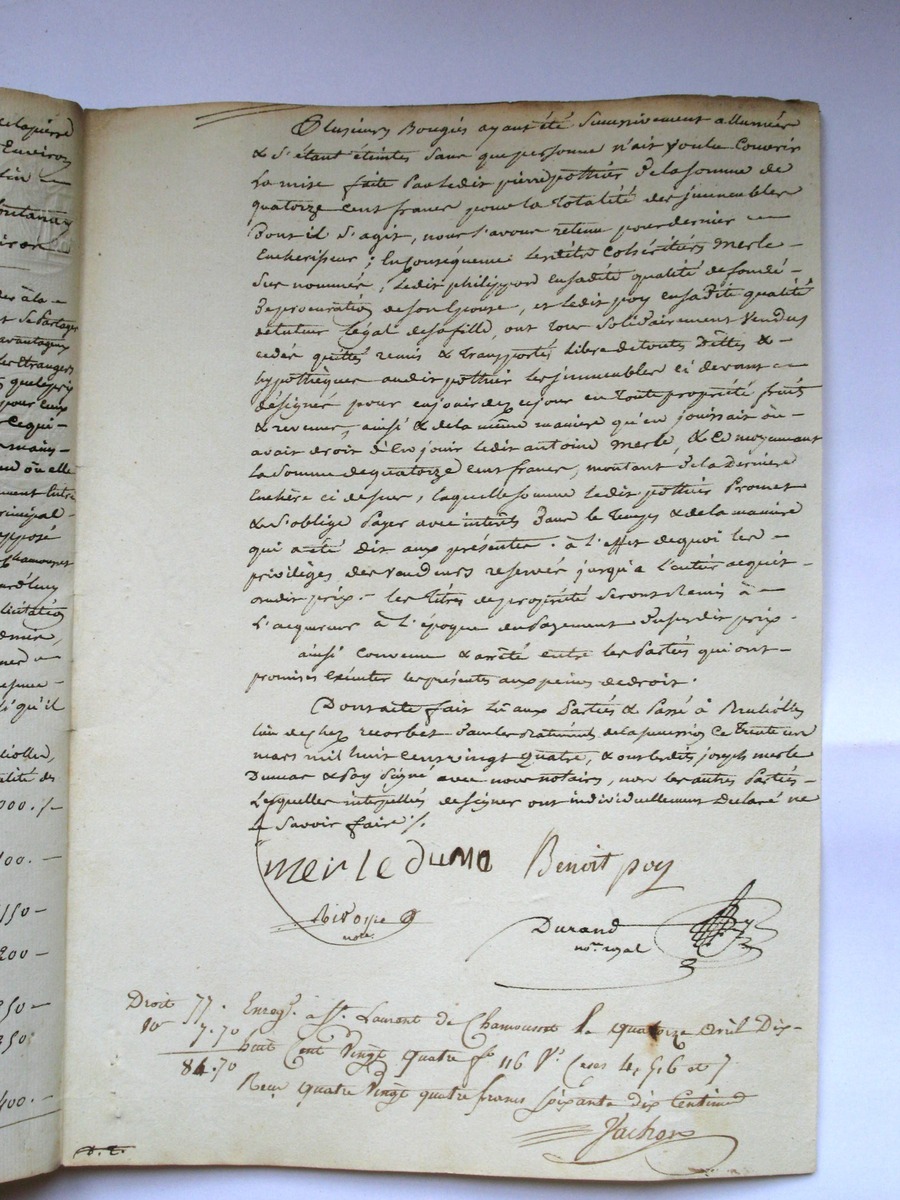 de lapierre
Environ
fontanay
Plusieurs Bougies ayant été Successivement allumées
& S'étant éteintes Sans que personne n'ait voulu Couvrir
La mise faite Par ledit pierre pothier de la somme de
quatorze Cent francs pour la Totalité des jmmeubles
Dont il S'agit, nous l'avons retenu pour dernier —
Encherisseur ; En conséquence Lesdits Cohéritiers Merle —
Sus nommés, ledit philippon en sadite qualité de fondé —
De procuration de son Epouse, et ledit poy en sadite qualité
de tuteur légal de sa fille, ont tous Solidairement Vendus
cédés quittés remis & transportés libre de toutes Dettes & —
hypothèques audit pothier les jmmeubles ci devant —
désignés pour en jouir dez ce jour en toute propriété fruits
& revenus, ainsi & de la même maniere qu'en jouissait ou —
avait droit d'En jouir ledit antoine Merle, & Ce moyennant
La Somme de quatorze Cent francs, montant de la Derniere
Enchère ci dessus, laquelle somme ledit pothier Promet
& S'oblige Payer avec intérêts Dans le Temps & de la maniere
qui a été dit aux présentes. à l'effet de quoi les —
privilèges des vendeurs reservés jusqu'a l'entier acquit —
dudit prix. — les Titres de propriété Seront Remis à —
L'acquereur à l'époque du Payement Dususdit prix.
ainsi Convenu & arrêté entre les Parties qui ont —
promises Exécuter les présentes aux peines de droit.
Dont acte fait Lû aux Parties & Passé à Brullioles
lieu de chez recorbet Dans les Batiments de la succession Ce Trente un
mars mil huit Cent vingt quatre, & ont lesdits joseph merle
Dumas & Poy Signé avec nous notaires, non les autres Parties —
Lesquelles interpellées de signer ont individuellement Declaré ne
le Savoir faire ./.
merle duma Benoit poy
Rivoire
nore.
Durand
nore. royal
Droit 77. Enregé. à St. Laurent de Chamousset le quatorze avril Dix-
10e 7.70 huit Cent Vingt quatre fo 116 Vo Cases 4, 5, 6 et 7
84.70 Reçu quatre Vingt quatre francs soixante dix Centimes
Vachon